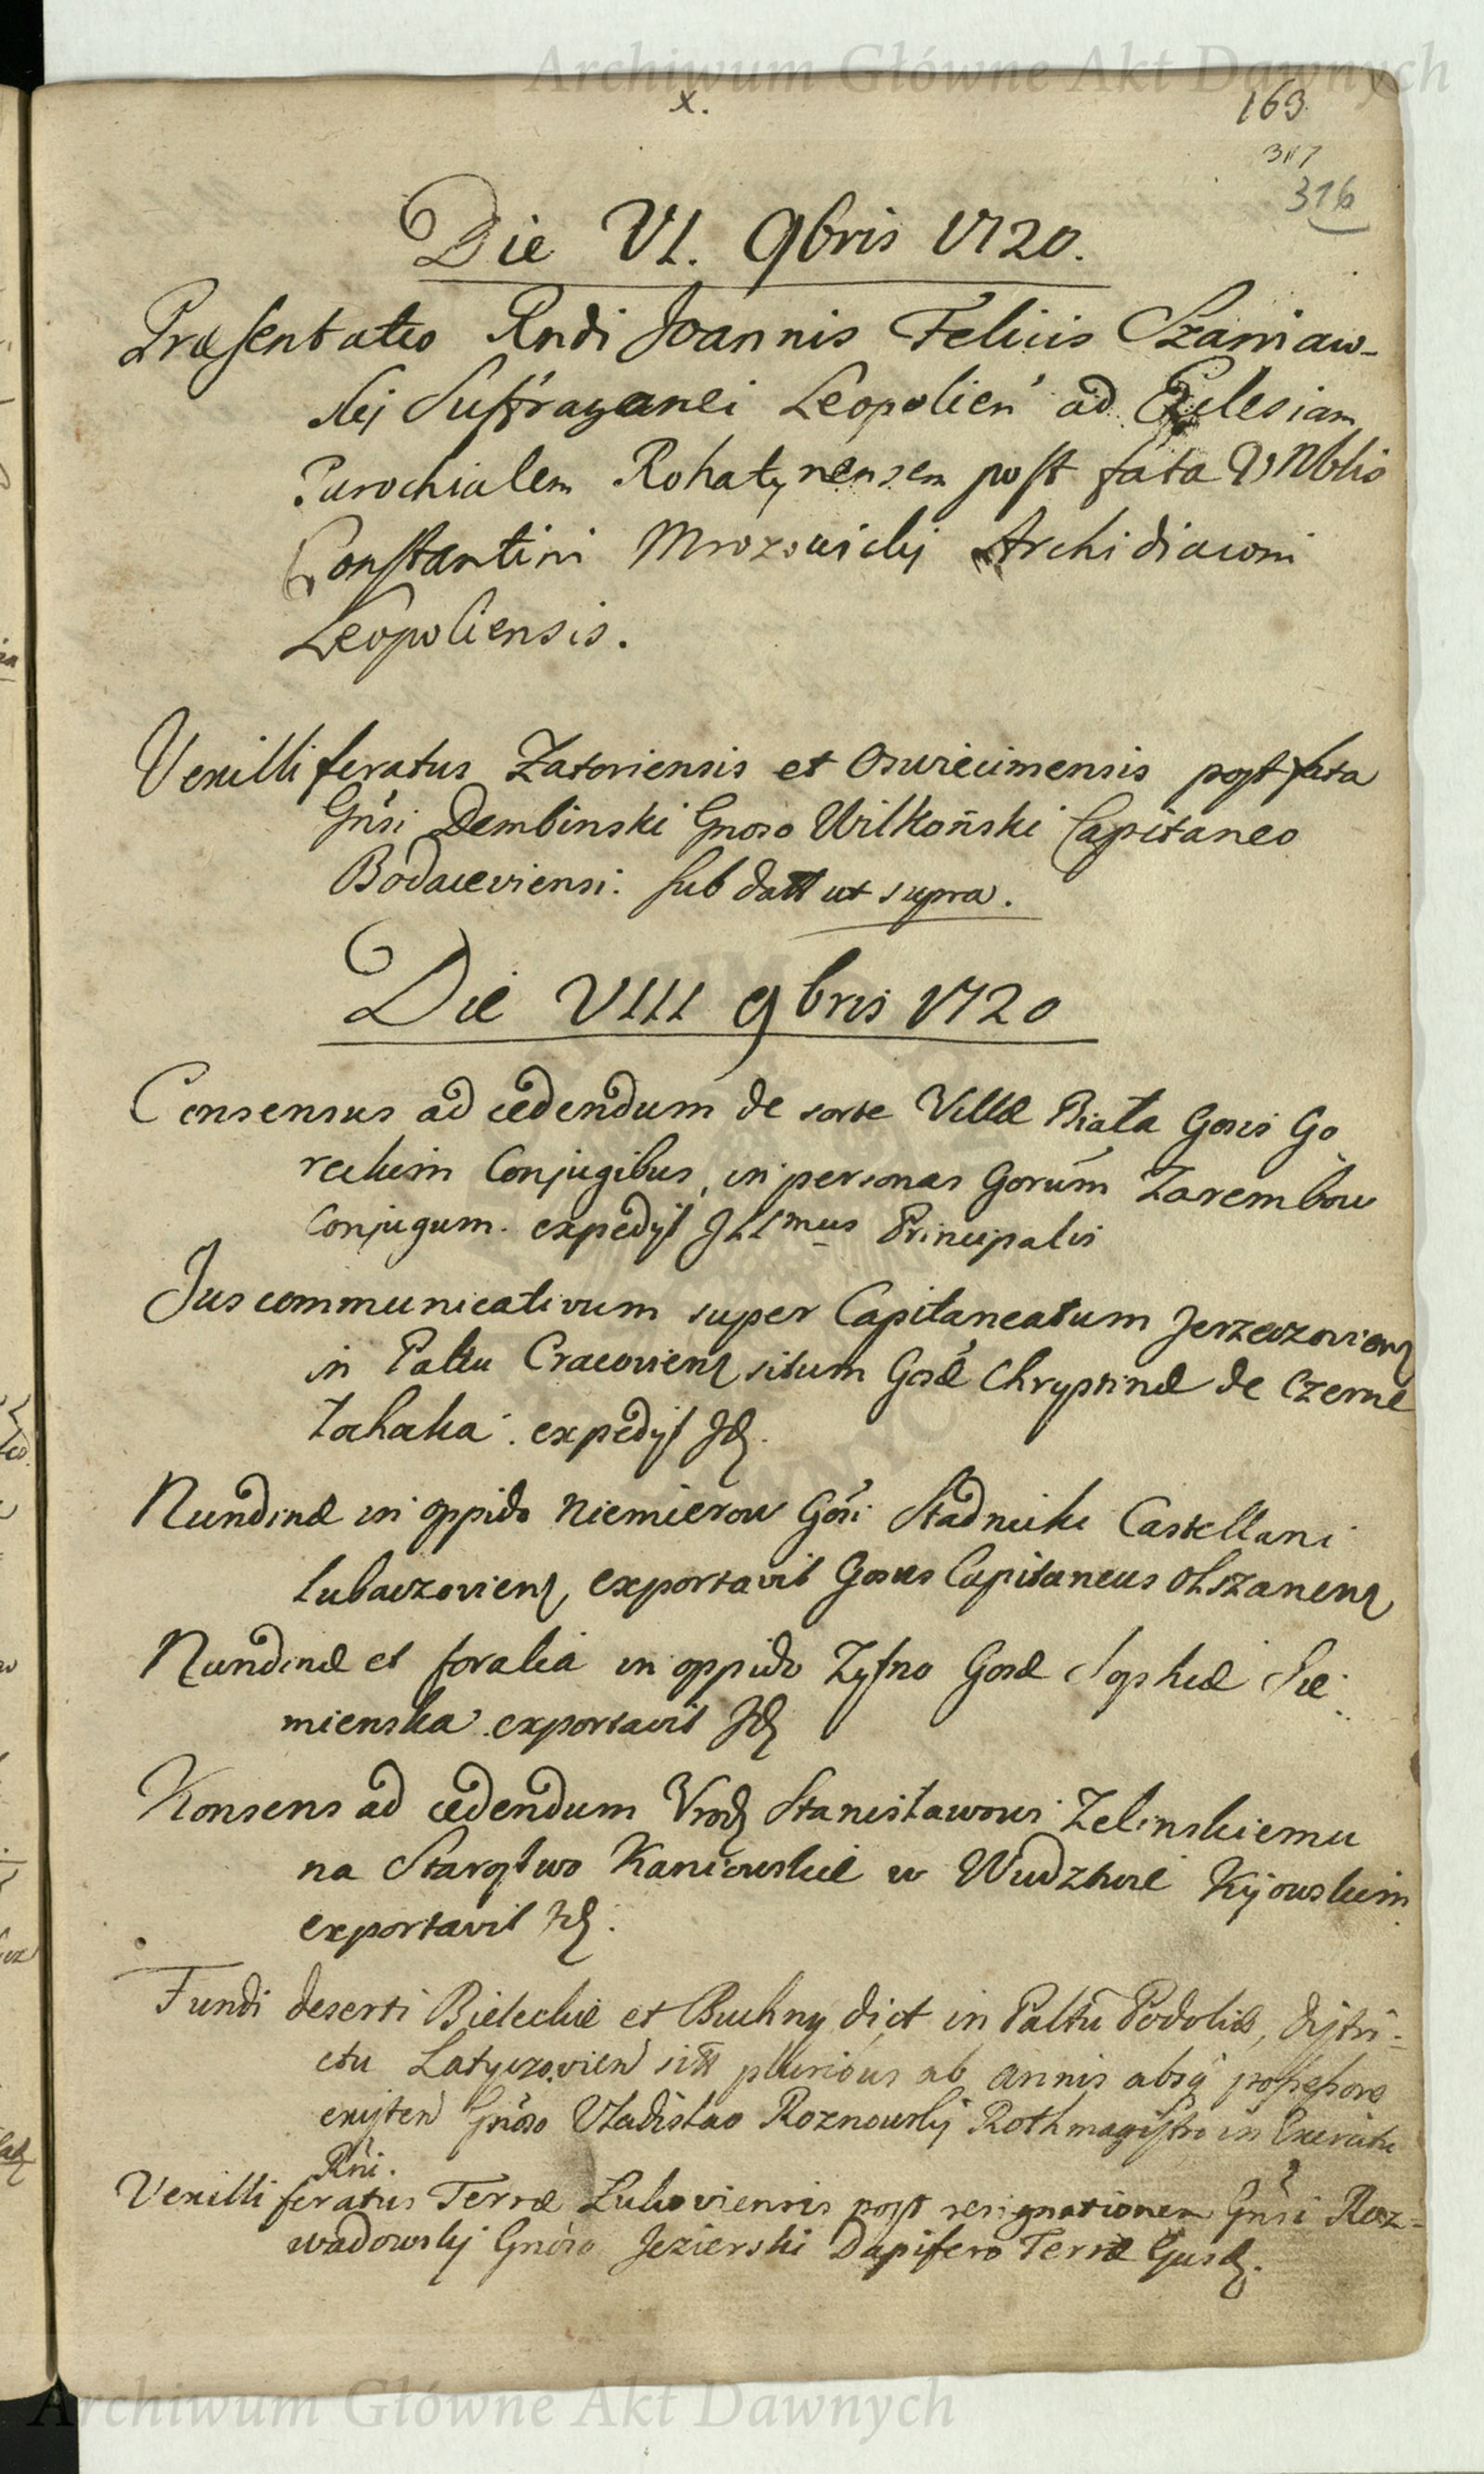 Archiwum Główne Akt Dawnych
x.
163
317
316
Die VI. 9bris 1720.
Præsentatio Rndi Joannis Felicis Szaniaw-
skij Suffraganei Leopolien ad Ecclesiam
Parochialem Rohatynensem post fata
Constantini Mrozowickij Archidiaconi
Leopoliensis.
Vexilliferatus Zatoriensis et Oswiecimensis post fata
Gnsi Dembinski Gnoso Wilkoński Capitaneo
Bodaceviensi. sub datt ut supra.
Die VIII 9bris 1720
Consensus ad cedendum de sorte Villæ Biała Gosis Go
reckim Conjugibus, in personas Gorum Zarembow
Conjugum. expedyt Illmus Principalis
Jus communicativum super Capitaneatum
in Paltu Cracovien situm Gosæ Chrystinæ de Czerne
expedyt Id.
Nundinæ in oppido Niemierow Gosi Stadnicki Castellani
Lubaczovien, exportavit Gosus Capitaneus Olszanen
Nundinæ et foralia in oppido Zytno Gosæ Sophiæ Sie
mienska exportavit Id
Konsens ad cedendum Urod Stanisławowi Zelinskiemu
na Starostwo Kaniowskie w Wudztwie Kijowskim
exportavit Id.
Fundi deserti Bieleckie et Buchny dict in Paltu Podoliæ, Distri-
ctu Latyczovien sitt pluribus ab annis absq possessore
existen Gnoso Vladislao Roznowskij Rothmagistro in Exercitu
Rni.
Vexilliferatus Terræ Lukoviensis post resignationem Gnsi Roz-
wadowskij Gnoso Jezierski Dapifero Terræ Ejusd.
Archiwum Główne Akt Dawnych